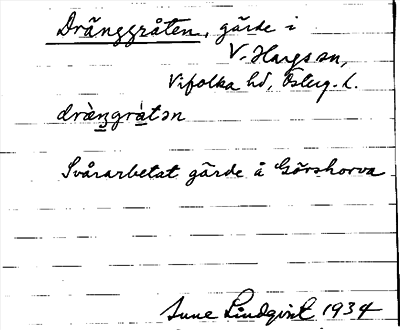 Dränggråten, gärde i
V. Hargs sn,
Vifolka hd, Österg. l.
dràŋgrátən
Svårarbetat gärde å Görshorva
Sune Lindqvist 1934